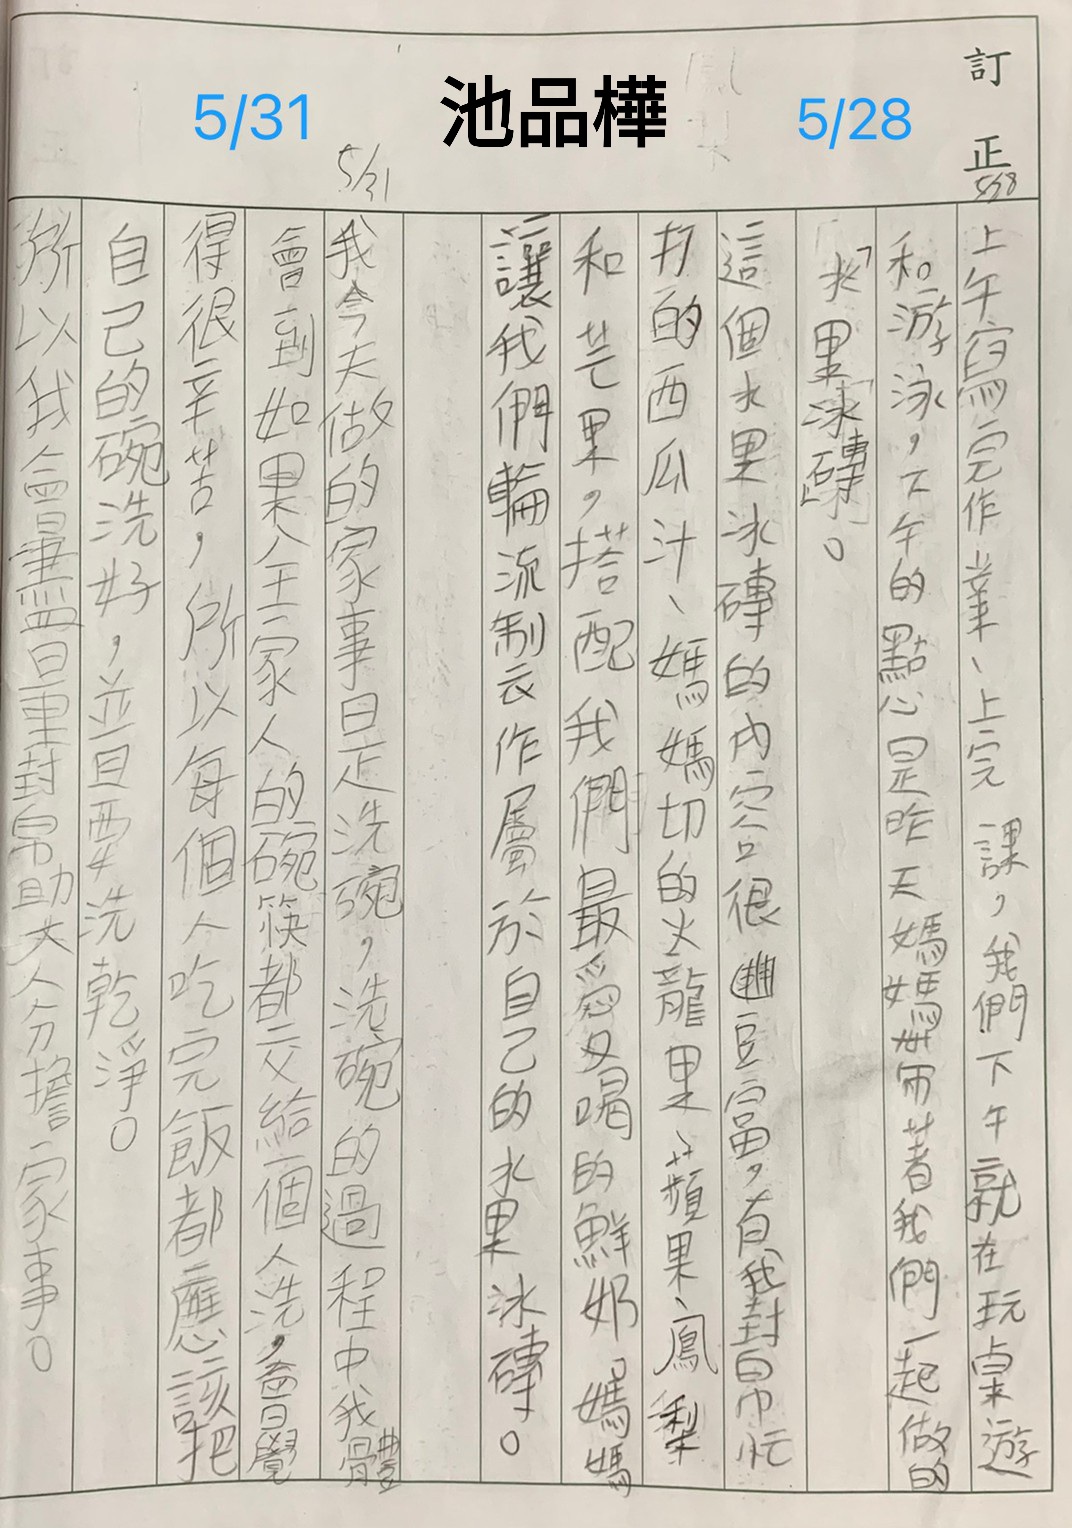 訂正
5/31
池品樺
5/28
5/28
上午寫完作業、上完課，我們下午就在玩桌遊
和游泳，下午的點心是昨天媽媽帶著我們一起做的
「水果冰磚」。
這個水果冰磚的內容很豐富，有我幫忙
打的西瓜汁、媽媽切的火龍果、蘋果、鳳梨
和芒果，搭配我們最愛喝的鮮奶，媽媽
讓我們輪流製作屬於自己的水果冰磚。
5/31
我今天做的家事是洗碗，洗碗的過程中我體
會到如果全家人的碗筷都交給一個人洗，會覺
得很辛苦，所以每個人吃完飯都應該把
自己的碗洗好，並且要洗乾淨。
所以我會盡量幫助大人分擔家事。